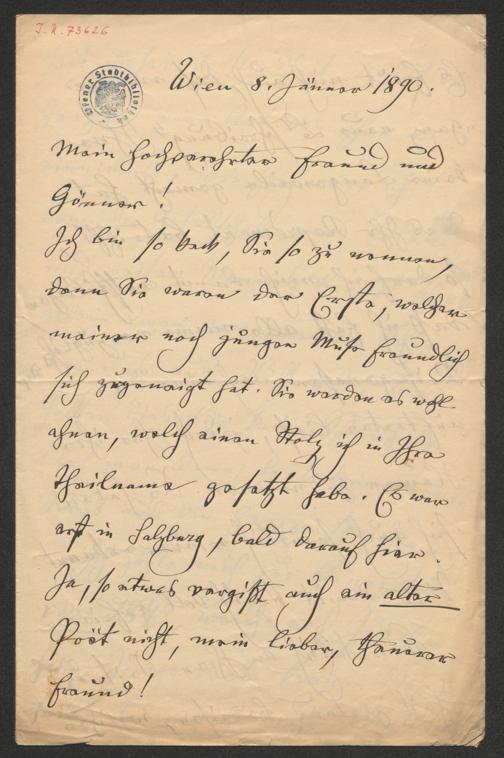 J.N. 73626
Wiener Stadtbibliothek
Wien 8. Jänner 1890.
Mein hochverehrter Freund und
Gönner!
Ich bin so keck, Sie so zu nennen,
denn Sie waren der Erste, welcher
meiner noch jungen Muse freundlich
sich zugeneigt hat. Sie werden es wohl
ahnen, welch einen Stolz ich in Ihre
Theilname gesetzt habe. Es war
erst in Salzburg, bald darauf hier.
Ja, so etwas vergißt auch ein alter
Poët nicht, mein lieber, theuerer
Freund!